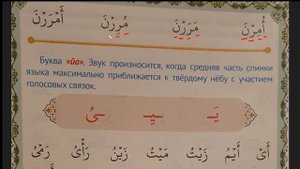 أُمِرْنَ مَرَرْنَ مُرِرْنَ أَمَرْنَ
Буква «йа». Звук произносится, когда средняя часть спинки
языка максимально приближается к твёрдому нёбу с участием
голосовых связок.
يَـ ـيِـ ـيُ
أَىْ أَيْمُ زَيْتُ مَيْتُ زَيْنُ رَأْىُ رَمْىُ